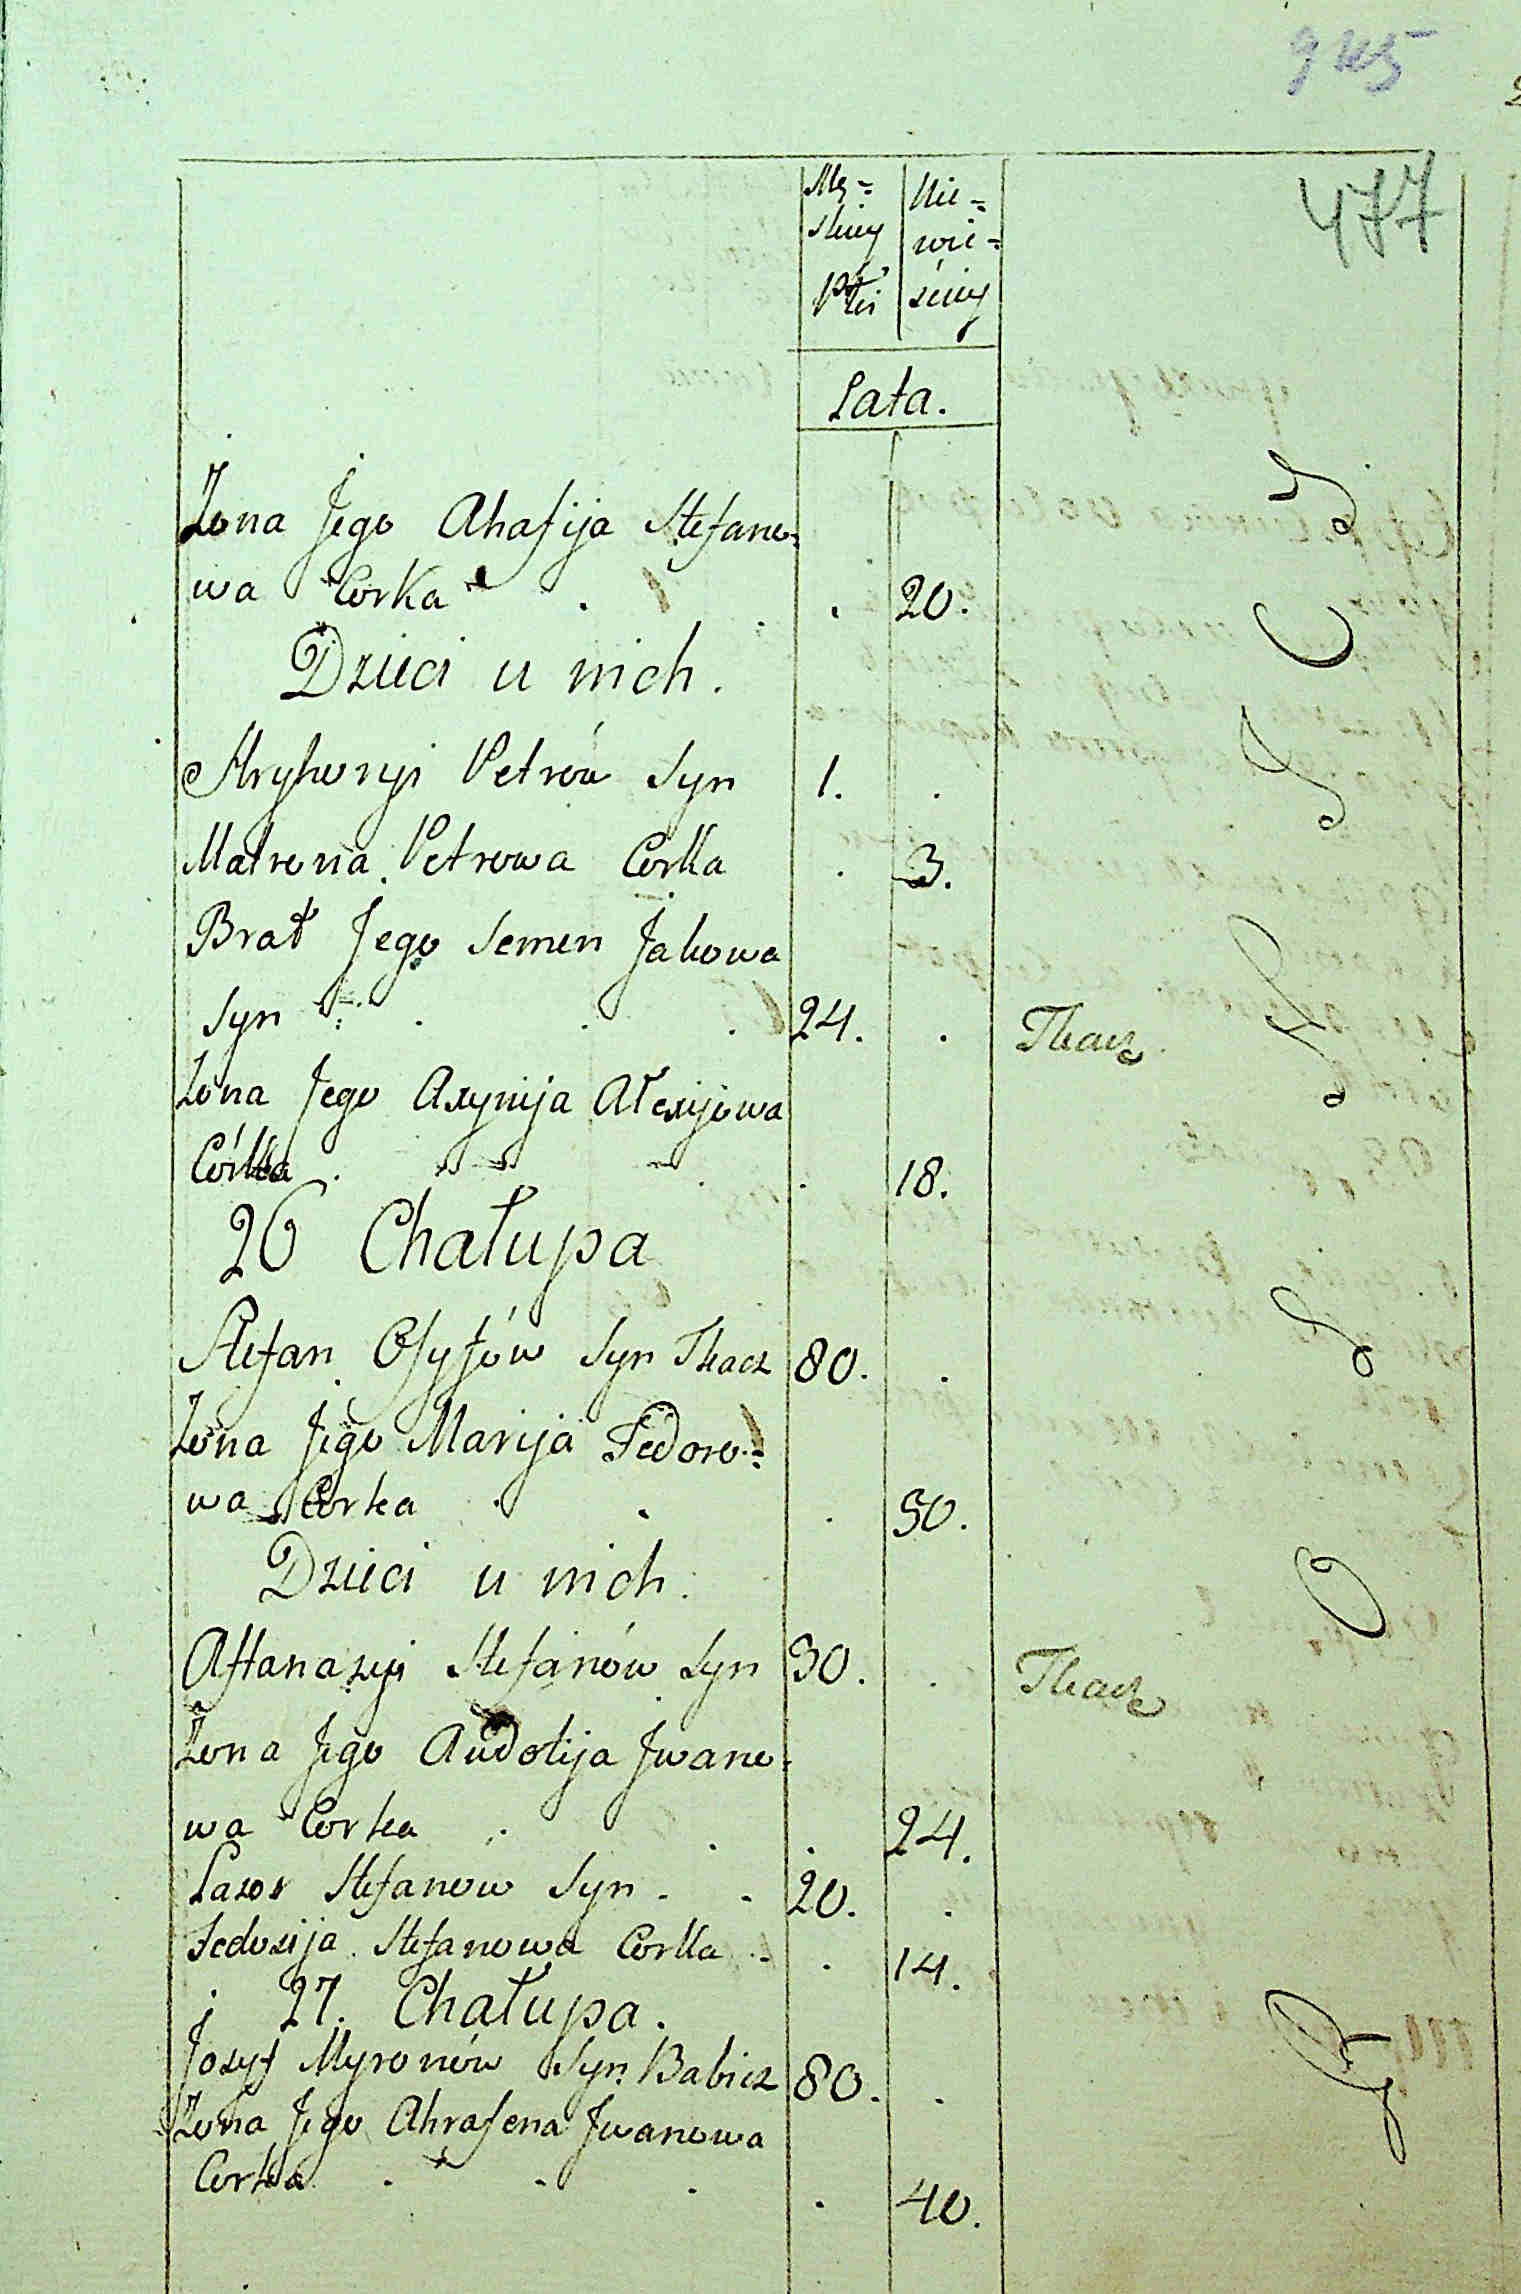 945
477
Mę= Nie=
skiey wie=
Płci ściey
Lata.
Żona Jego Ahafija Stefano=
wa Corka . . 20.
Dzieci u nich.
Hryhoryi Petrów Syn 1. .
Matrona Petrowa Corka . 3.
Brat Jego Semen Jakowa
Syn . . . 24. . Tkacz
Żona Jego Axynija Ałexijowa
Córka . . . 18.
26 Chałupa
Stefan Osyfów Syn Tkacz 80. .
Żona Jego Marija Fedoro=
wa Corka . . . 50.
Dzieci u nich.
Aftanazyi Stefanów Syn 30. . Tkacz
Żona Jego Audotija Jwano=
wa Corka . . . 24.
Lazor Stefanow Syn . . 20. .
Fedosija Stefanowa Corka . . 14.
27. Chałupa.
Jozyf Myronów Syn Babicz 80. .
Żona Jego Ahrafena Jwanowa
Corka . . . . 40.